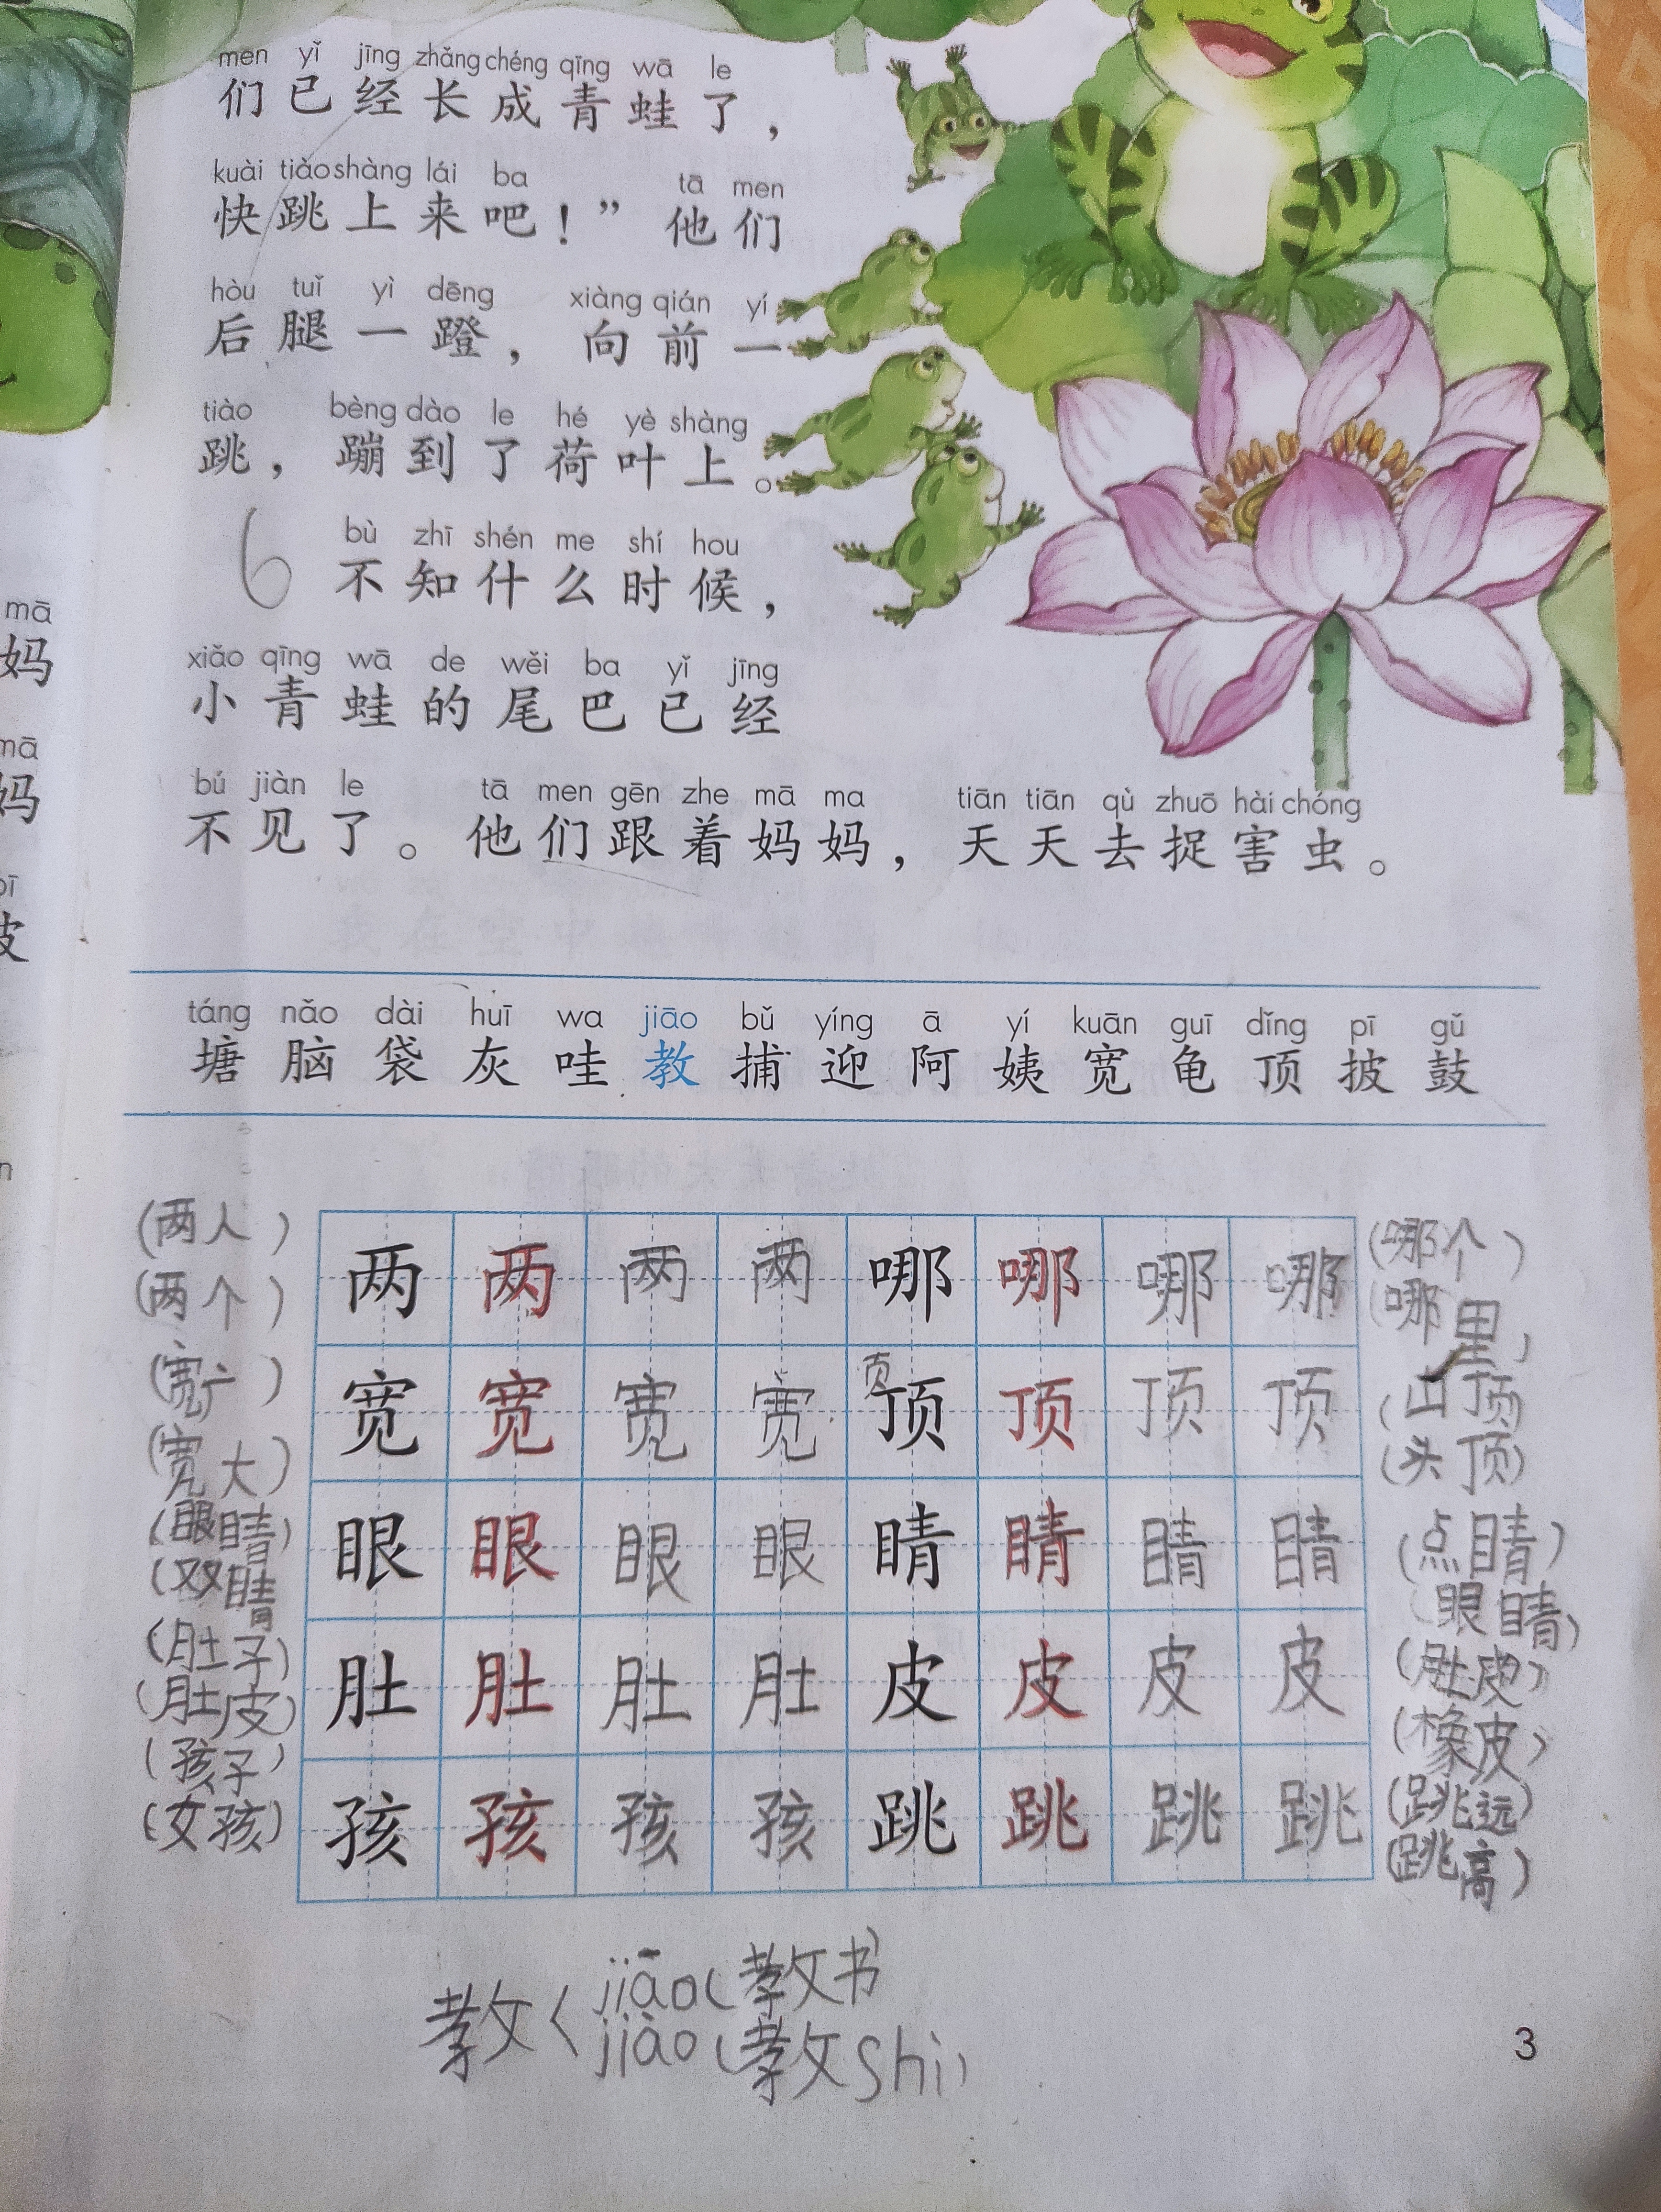 men yǐ jīng zhǎng chéng qīng wā le
们已经长成青蛙了，
kuài tiào shàng lái ba tā men
快跳上来吧！”他们
hòu tuǐ yì dēng xiàng qián yí
后腿一蹬，向前一
tiào bèng dào le hé yè shàng
跳，蹦到了荷叶上。
6
bù zhī shén me shí hou
不知什么时候，
xiǎo qīng wā de wěi ba yǐ jīng
小青蛙的尾巴已经
bú jiàn le tā men gēn zhe mā ma tiān tiān qù zhuō hài chóng
不见了。他们跟着妈妈，天天去捉害虫。
mā
妈
mā
妈
pī
皮
n
táng nǎo dài huī wa jiāo bǔ yíng ā yí kuān guī dǐng pī gǔ
塘脑袋灰哇教捕迎阿姨宽龟顶披鼓
(两人) 两两两两哪哪哪哪 (哪个)
(两个) (哪里)
(宽广) 宽宽宽宽页顶顶顶顶 (山顶)
(宽大) (头顶)
(眼睛) 眼眼眼眼睛睛睛睛 (点睛)
(双睛 (眼睛)
(肚子) 肚肚肚肚皮皮皮皮 (肚皮)
(肚皮) (橡皮)
(孩子) 孩孩孩孩跳跳跳跳 (跳远)
(女孩) (跳高)
教〈 jiāo(教书)
jiào(教shi)
3